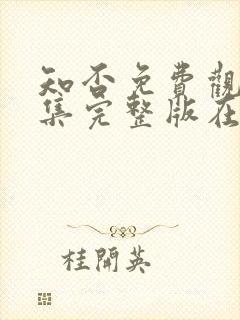 知否免費觀
集完整版在
桂開英